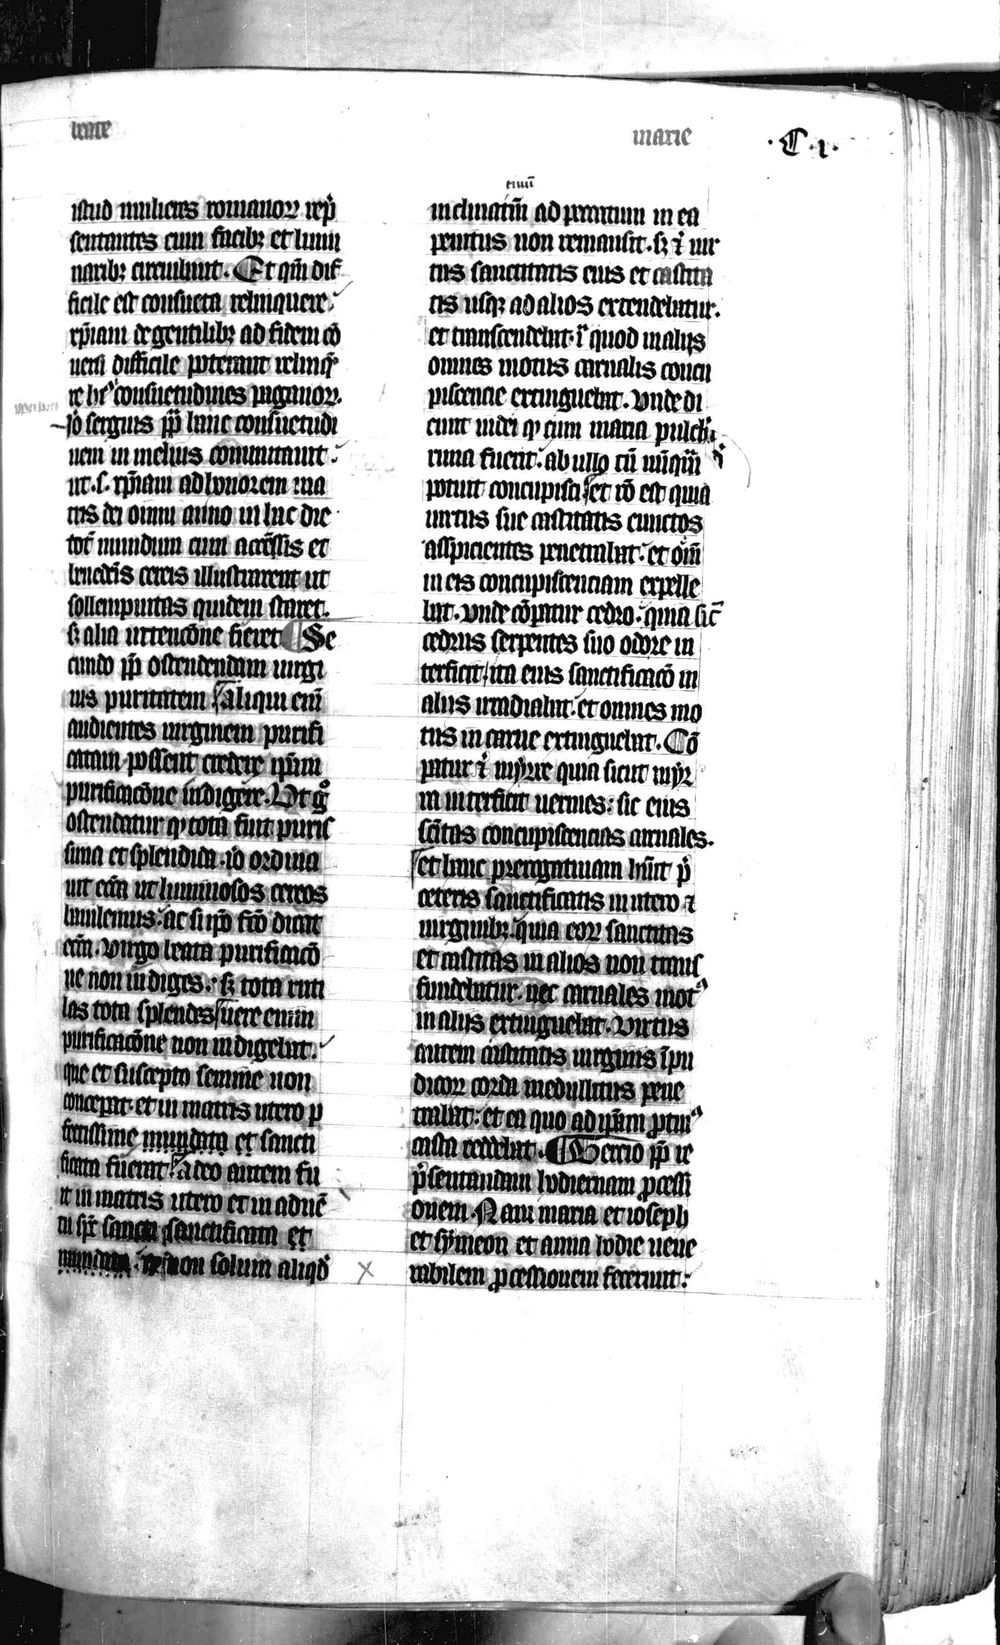 beate
marie
.C.i.
istud mulieres romanorꝝ rep̄
sentantes cum facibꝫ et lumi
naribꝫ circuibant. Et qm̄ dif
ficile est consueta relinquere
xp̄iani de gentilibꝫ ad fidem cō
uersi difficile poterant relinq̄
re hꝰ consuetudines paganorꝝ.
iō sergius pp̄ hanc consuetudi
nem in melius commutauit
ut .s. xp̄iani ad honorem ma
tris dei omni anno in hac die
totū mundum cum accēssis et
benedc̄is cereis illustrarent ut
sollempnitas quidem staret.
sꝫ alia intencōne fieret Se
cundo pp̄ ostendendam uirgi
nis puritatem aliqui enī
audientes uirginem purifi
catam possent credere ip̄am
purificacōne indigere. Ut gͦ
ostendatur ꝙ tota fuit puris
sima et splendida iō ordina
uit ecc̄a ut luminosos cereos
baiulemus. ac si ip̄o fc̄o dicat
ecc̄a. virgo beata purificacō
ne non indiges. sꝫ tota ruti
las tota splendes uere enim
purificacōne non indigebat.
que et suscepto semine non
concepat. et in matris utero p
fectissime mundata et sancti
ficata fuerat. adeo autem fu
it in matris utero et in aduē
tu sp̄c sancti sanctificata et
mundata. non solum aliqd̄
eiuii
inclinatiū ad peccatum in ea
penitus non remansit. sꝫ ⁊ uir
tus sanctitatis eius et castita
tis usqꝫ ad alios extendebatur.
et transcendebat. ī quod in alijs
omnes motus carnalis concu
piscencie extinguebat. vnde di
cunt iudei ꝙ cum maria pulch̄
rima fuerit. ab ullo tū nūqm̄
potuit concupisci et rō est quia
uirtus sue castitatis cunctos
asspicientes penetrabat. et om̄
in eis concupiscenciam expelle
bat. vnde cōpatur cedro. quia sic̄
cedrus serpentes suo odore in
terficit. ita eius sanctificacō in
alijs irradiabat. et omnes mo
tus in carne extinguebat. Cō
patur ⁊ myrre quia sicut myr
ra interficit uermes: sic eius
sc̄itas concupiscencias carnales.
et hanc prerogatiuam hūit p̄
ceteris sanctificatis in utero ⁊
uirginibꝫ. quia eorꝝ sanctitas
et castitas in alios non trans
fundebatur. nec carnales motꝰ
in alijs extinguebat. Virtus
autem castitatis uirginis īpu
dicorꝝ corda medullitus pene
trabat. et ea quo ad ip̄am ꝓtinꝰ
casta reddebat. Tercio pp̄ re
p̄sentandam hodiernam ꝓcessi
onem. Nam maria et ioseph
et symeon et anna hodie uene
rabilem ꝓcessionem fecerunt: